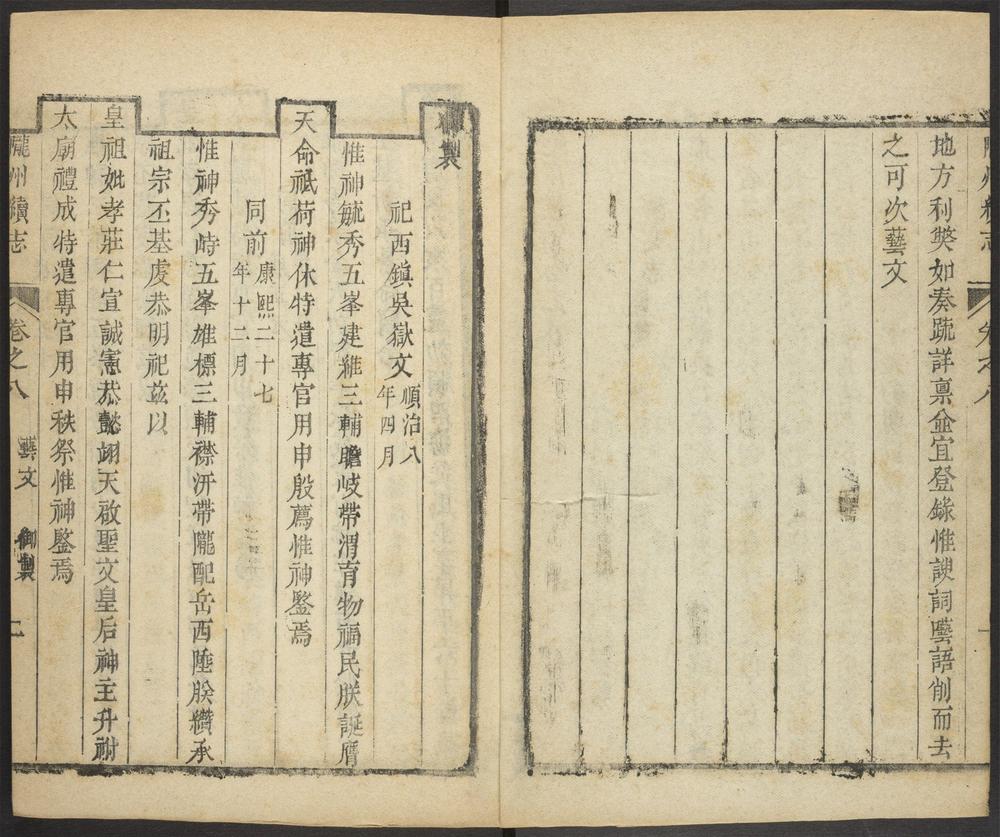 地方利獘如奏疏詳禀僉宜登錄惟諛詞囈語削而去
之可次藝文
御製
祀西鎮吳嶽文順治八年四月
惟神毓秀五峯建維三輔瞻岐帶渭育物福民朕誕膺
天命祇荷神休特遣專官用申殷薦惟神鑒焉
同前康熙二十七年十二月
惟神秀峙五峯雄標三輔襟汧帶隴配岳西陲朕纘承
祖宗丕基虔恭明祀玆以
皇祖妣孝莊仁宣誠憲恭懿翊天啟聖文皇后神主升祔
太廟禮成特遣專官用申秩祭惟神鑒焉
隴州續志
卷之八
藝文
御製